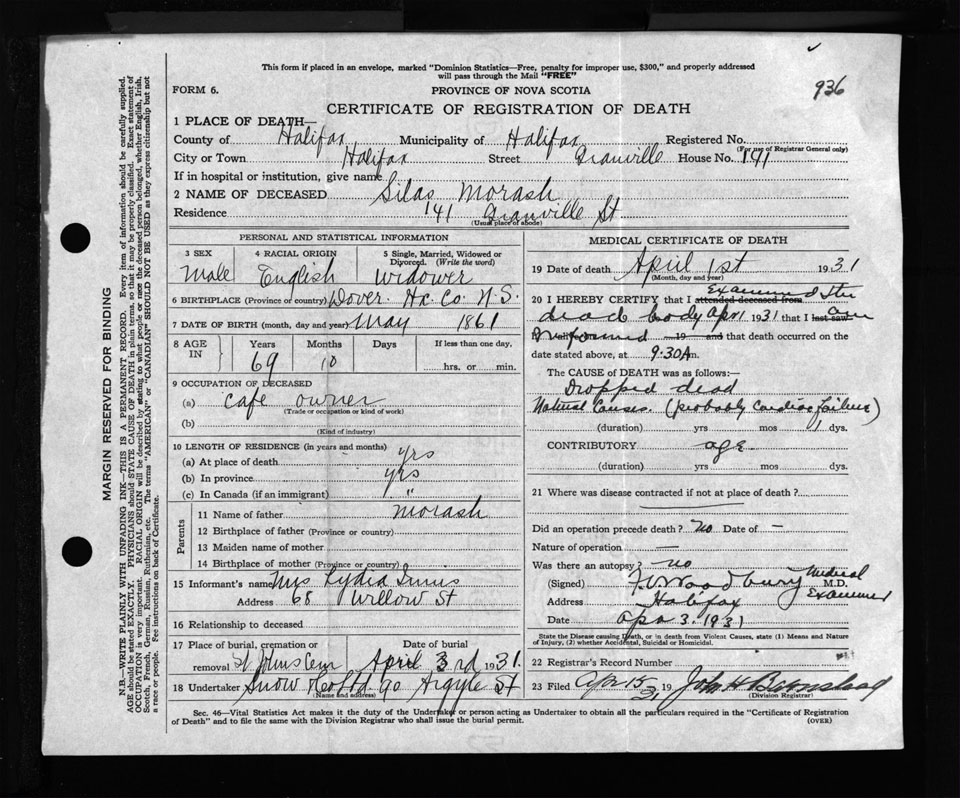 936
This form if placed in an envelope, marked "Dominion Statistics—Free, penalty for improper use, $300," and properly addressed
will pass through the Mail "FREE"
FORM 6. PROVINCE OF NOVA SCOTIA
CERTIFICATE OF REGISTRATION OF DEATH
1 PLACE OF DEATH—
County of Halifax Municipality of Halifax Registered No.
(For use of Registrar General only)
City or Town Halifax Street Granville House No. 141
If in hospital or institution, give name
2 NAME OF DECEASED Silas Morash
Residence 141 Granville St
(Usual place of abode)
PERSONAL AND STATISTICAL INFORMATION
3 SEX 4 RACIAL ORIGIN 5 Single, Married, Widowed or
Divorced. (Write the word)
Male English Widower
6 BIRTHPLACE (Province or country) Dover. Hx. Co. N.S.
7 DATE OF BIRTH (month, day and year) May 1861
8 AGE IN Years Months Days If less than one day,
69 10 hrs. or min.
9 OCCUPATION OF DECEASED
(a) Cafe owner
(Trade or occupation or kind of work)
(b)
(Kind of industry)
10 LENGTH OF RESIDENCE (in years and months)
(a) At place of death yrs
(b) In province yrs
(c) In Canada (if an immigrant) "
Parents
11 Name of father Morash
12 Birthplace of father (Province or country)
13 Maiden name of mother
14 Birthplace of mother (Province or country)
15 Informant's name Mrs Lydia Innis
Address 68 Willow St
16 Relationship to deceased
17 Place of burial, cremation or Date of burial
removal St Johns Cem April 3rd 1931.
18 Undertaker Snow Co Ltd 90 Argyle St
(Name and address)
MEDICAL CERTIFICATE OF DEATH
19 Date of death April 1st 1931
(Month, day and year)
20 I HEREBY CERTIFY that I attended deceased from Examined the
dead body Apr 1 1931 that I last saw am
informed 19 and that death occurred on the
date stated above, at 9.30 Am.
The CAUSE of DEATH was as follows:—
Dropped dead
Natural Causes. (probably cardiac failure)
(duration) yrs mos 1 dys.
CONTRIBUTORY age
(duration) yrs mos dys.
21 Where was disease contracted if not at place of death?
Did an operation precede death? no Date of —
Nature of operation —
Was there an autopsy? no
(Signed) Woodbury M.D. Medical Examiner
Address Halifax
Date Apr 3. 1931
State the Disease causing Death, or in death from Violent Causes, state (1) Means and Nature
of Injury, (2) whether Accidental, Suicidal or Homicidal.
22 Registrar's Record Number
23 Filed Apr 15 19 31 John H Barnstead
(Division Registrar)
Sec. 46—Vital Statistics Act makes it the duty of the Undertaker or person acting as Undertaker to obtain all the particulars required in the "Certificate of Registration
of Death" and to file the same with the Division Registrar who shall issue the burial permit. (OVER)
MARGIN RESERVED FOR BINDING
N.B.—WRITE PLAINLY WITH UNFADING INK—THIS IS A PERMANENT RECORD. Every item of information should be carefully supplied.
AGE should be stated EXACTLY. PHYSICIANS should STATE CAUSE OF DEATH in plain terms, so that it may be properly classified. Exact statement of
OCCUPATION is very important. RACIAL ORIGIN will be described by stating to what people or race the deceased person belonged, whether English, Irish,
Scotch, French, German, Russian, Ruthenian, etc. The terms "AMERICAN" or "CANADIAN" SHOULD NOT BE USED as they express citizenship but not
a race or people. See instructions on back of Certificate.